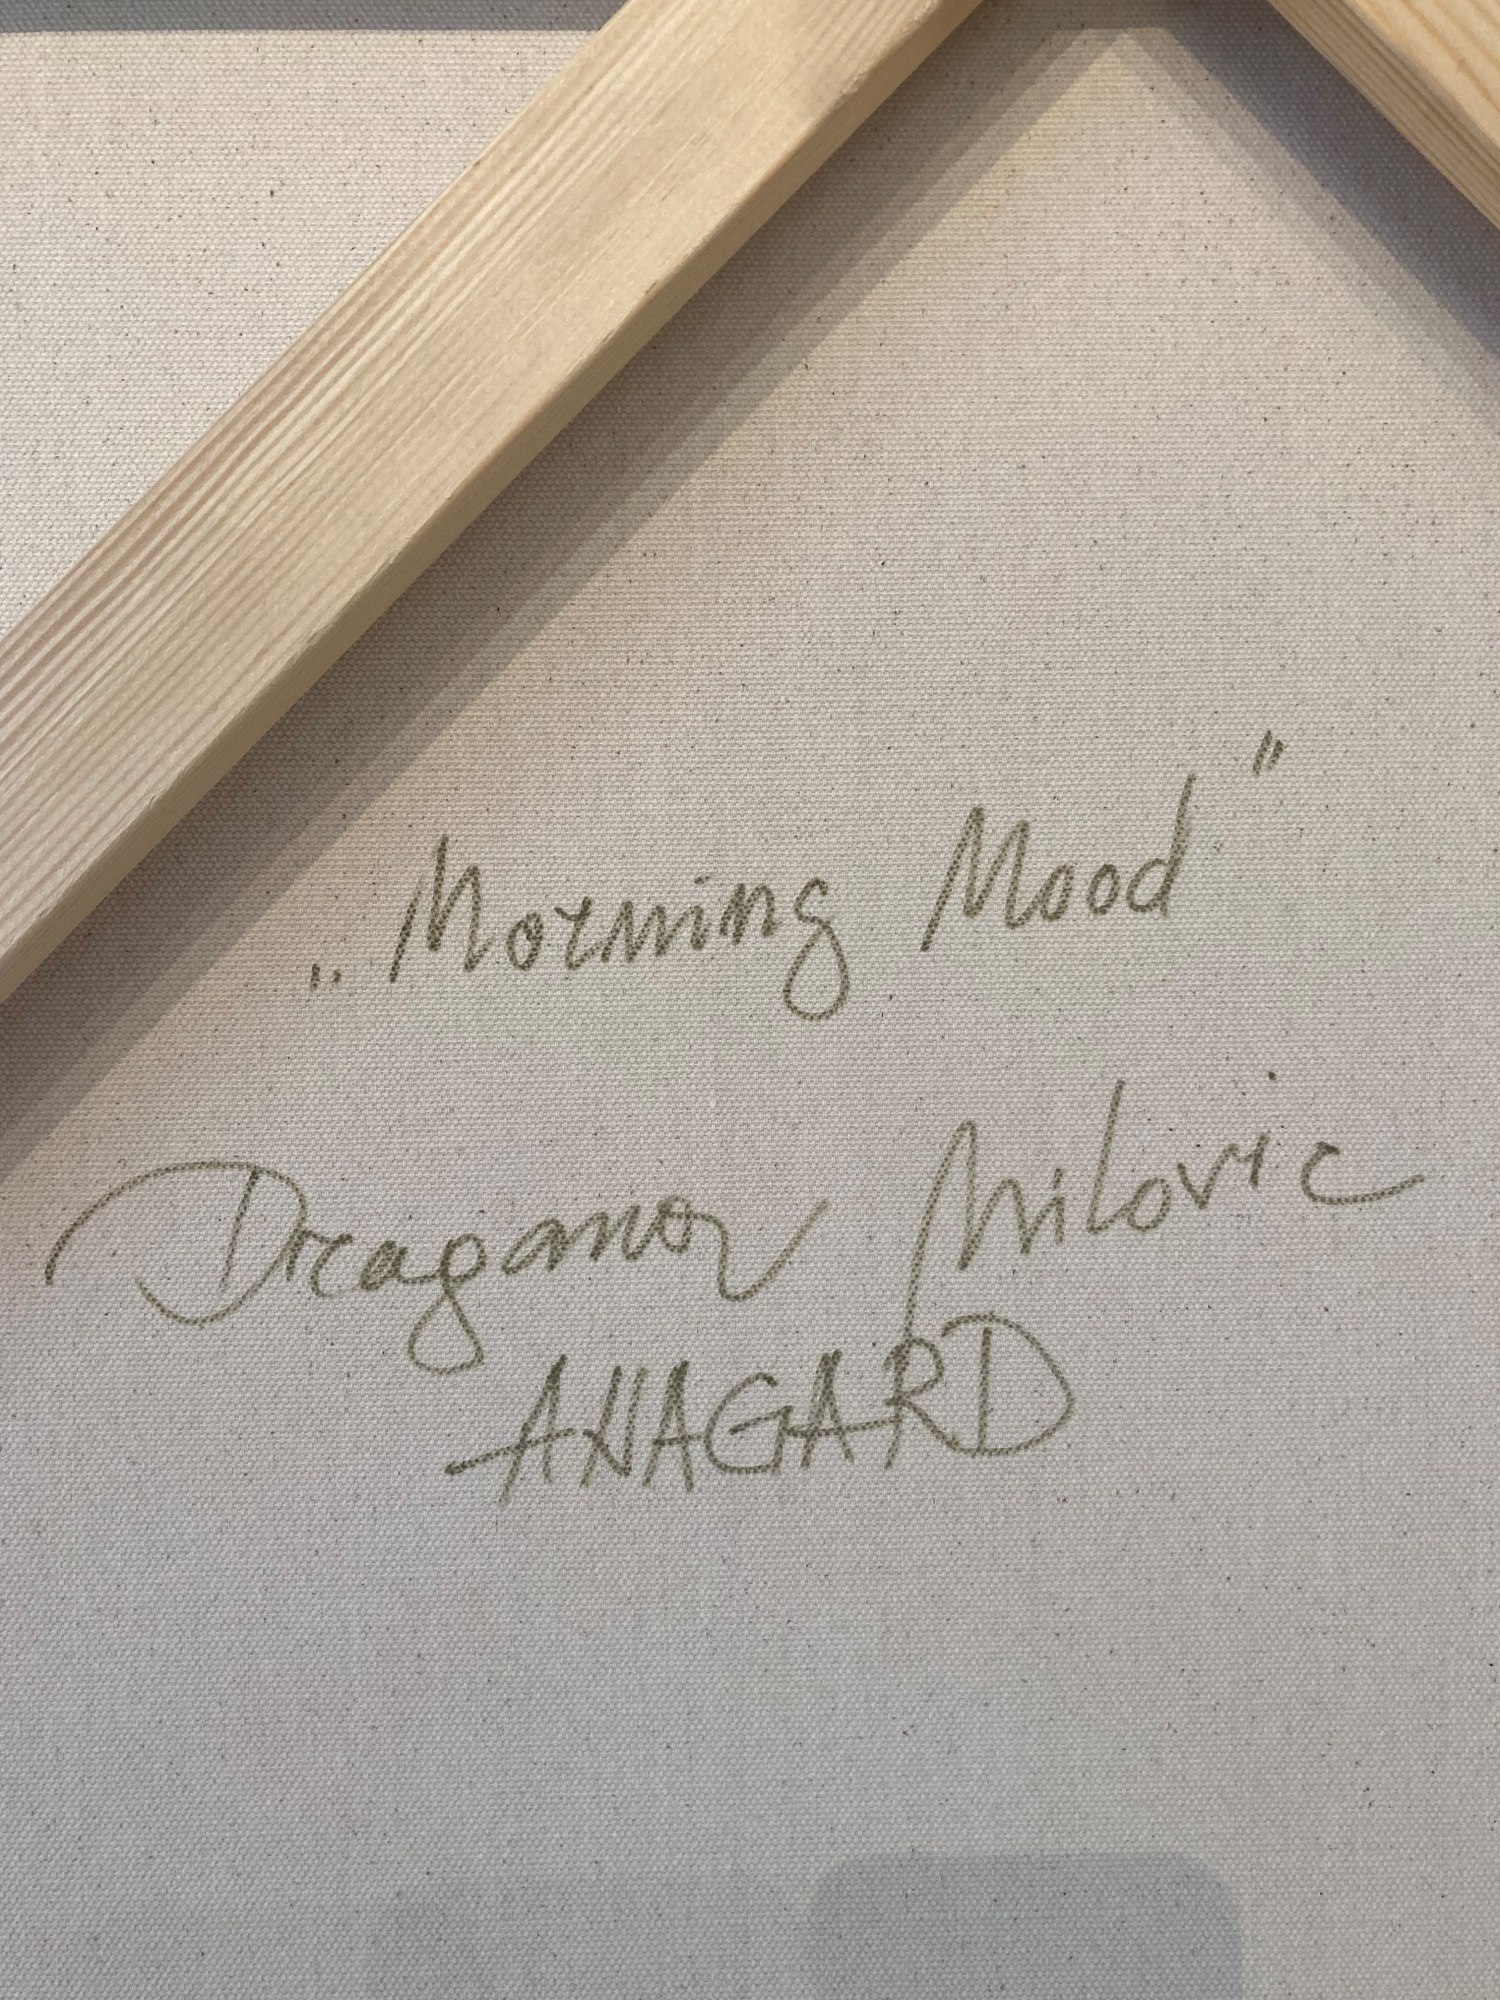 „Morning Mood"
Draganov Milovic
ANAGARD